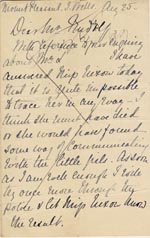 Mount Pleasant, T. Wells. Aug 25.
Dear Mr
With reference to your enquiry
about I have
answered Miss Nixon today
that it is quite impossible
to trace her in any way. I
think she must have died
or she would have found
some way of communicating
with the little girls. As soon
as I am well enough I will
once more through my
& let Miss Nixon know
the result.